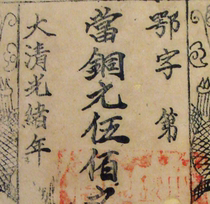 鄂字第
當銅元伍佰
大清光緒年